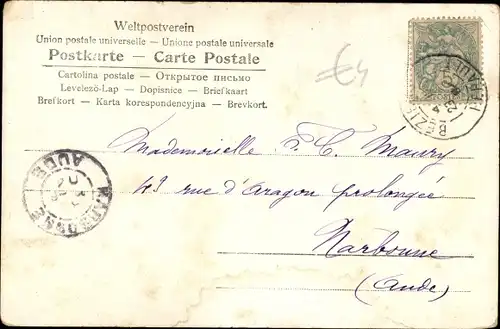 Weltpostverein
Union postale universelle — Unione postale universale
Postkarte — Carte Postale
Cartolina postale — Открытое письмо
Levelező-Lap — Dopisnice — Briefkaart
Brefkort — Karta korespondencyjna — Brevkort.
€4
Mademoiselle F. C. Maury
43 rue d'Aragon prolongée
Narbonne
(Aude)
NARBONNE
AUDE